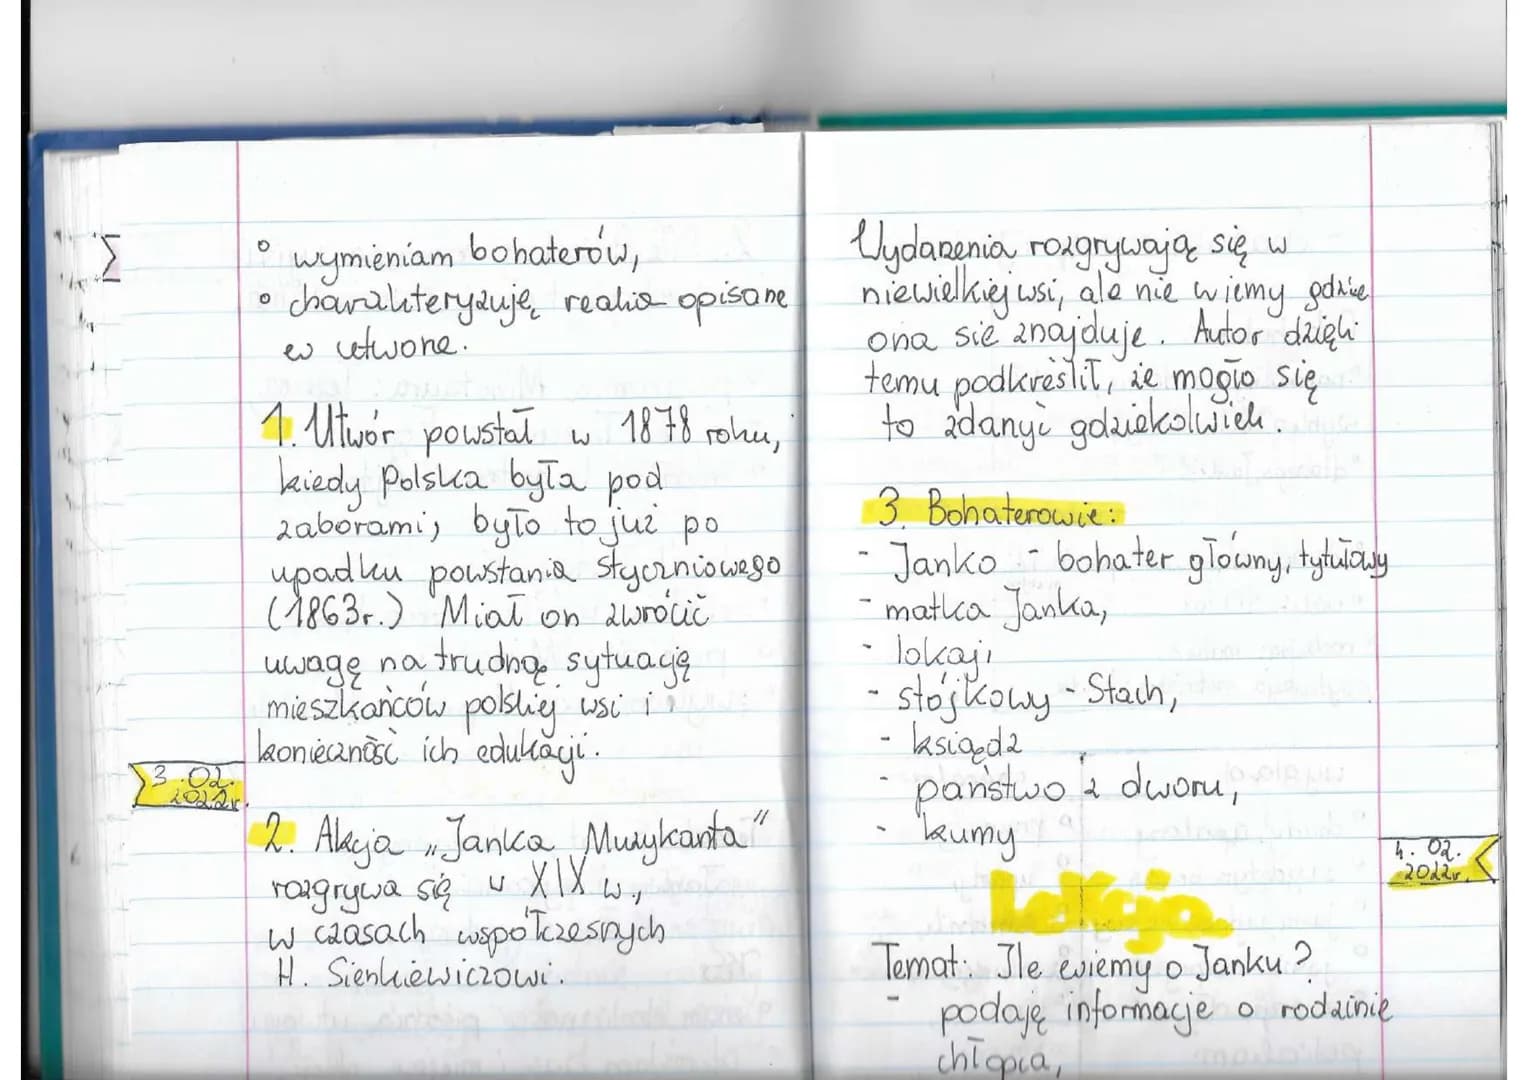 Σ
° wymieniam bohaterów,
° charakteryzuję realia opisane
w utworze.
1. Utwór powstał w 1878 roku,
kiedy Polska była pod
zaborami; było to już po
upadku powstania styczniowego
(1863r.) Miał on zwrócić
uwagę na trudną sytuację
mieszkańców polskiej wsi i
konieczność ich edukacji.
3.02.
2022r.
2. Akcja „Janka Muzykanta"
rozgrywa się w XIX w.,
w czasach współczesnych
H. Sienkiewiczowi.
Wydarzenia rozgrywają się w
niewielkiej wsi, ale nie wiemy gdzie
ona sie znajduje. Autor dzięki
temu podkreślił, że mogło się
to zdarzyć gdziekolwiek.
3. Bohaterowie:
- Janko - bohater główny, tytułowy
- matka Janka,
- lokaj,
- stójkowy - Stach,
- ksiądz
- państwo z dworu,
- kumy
4.02.
2022r.
Lekcja
Temat: Ile wiemy o Janku?
- podaję informacje o rodzinie
chłopca,